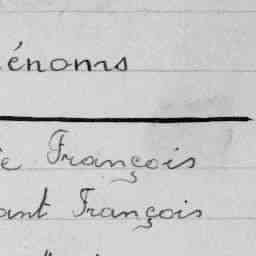 énoms
e François
ant François